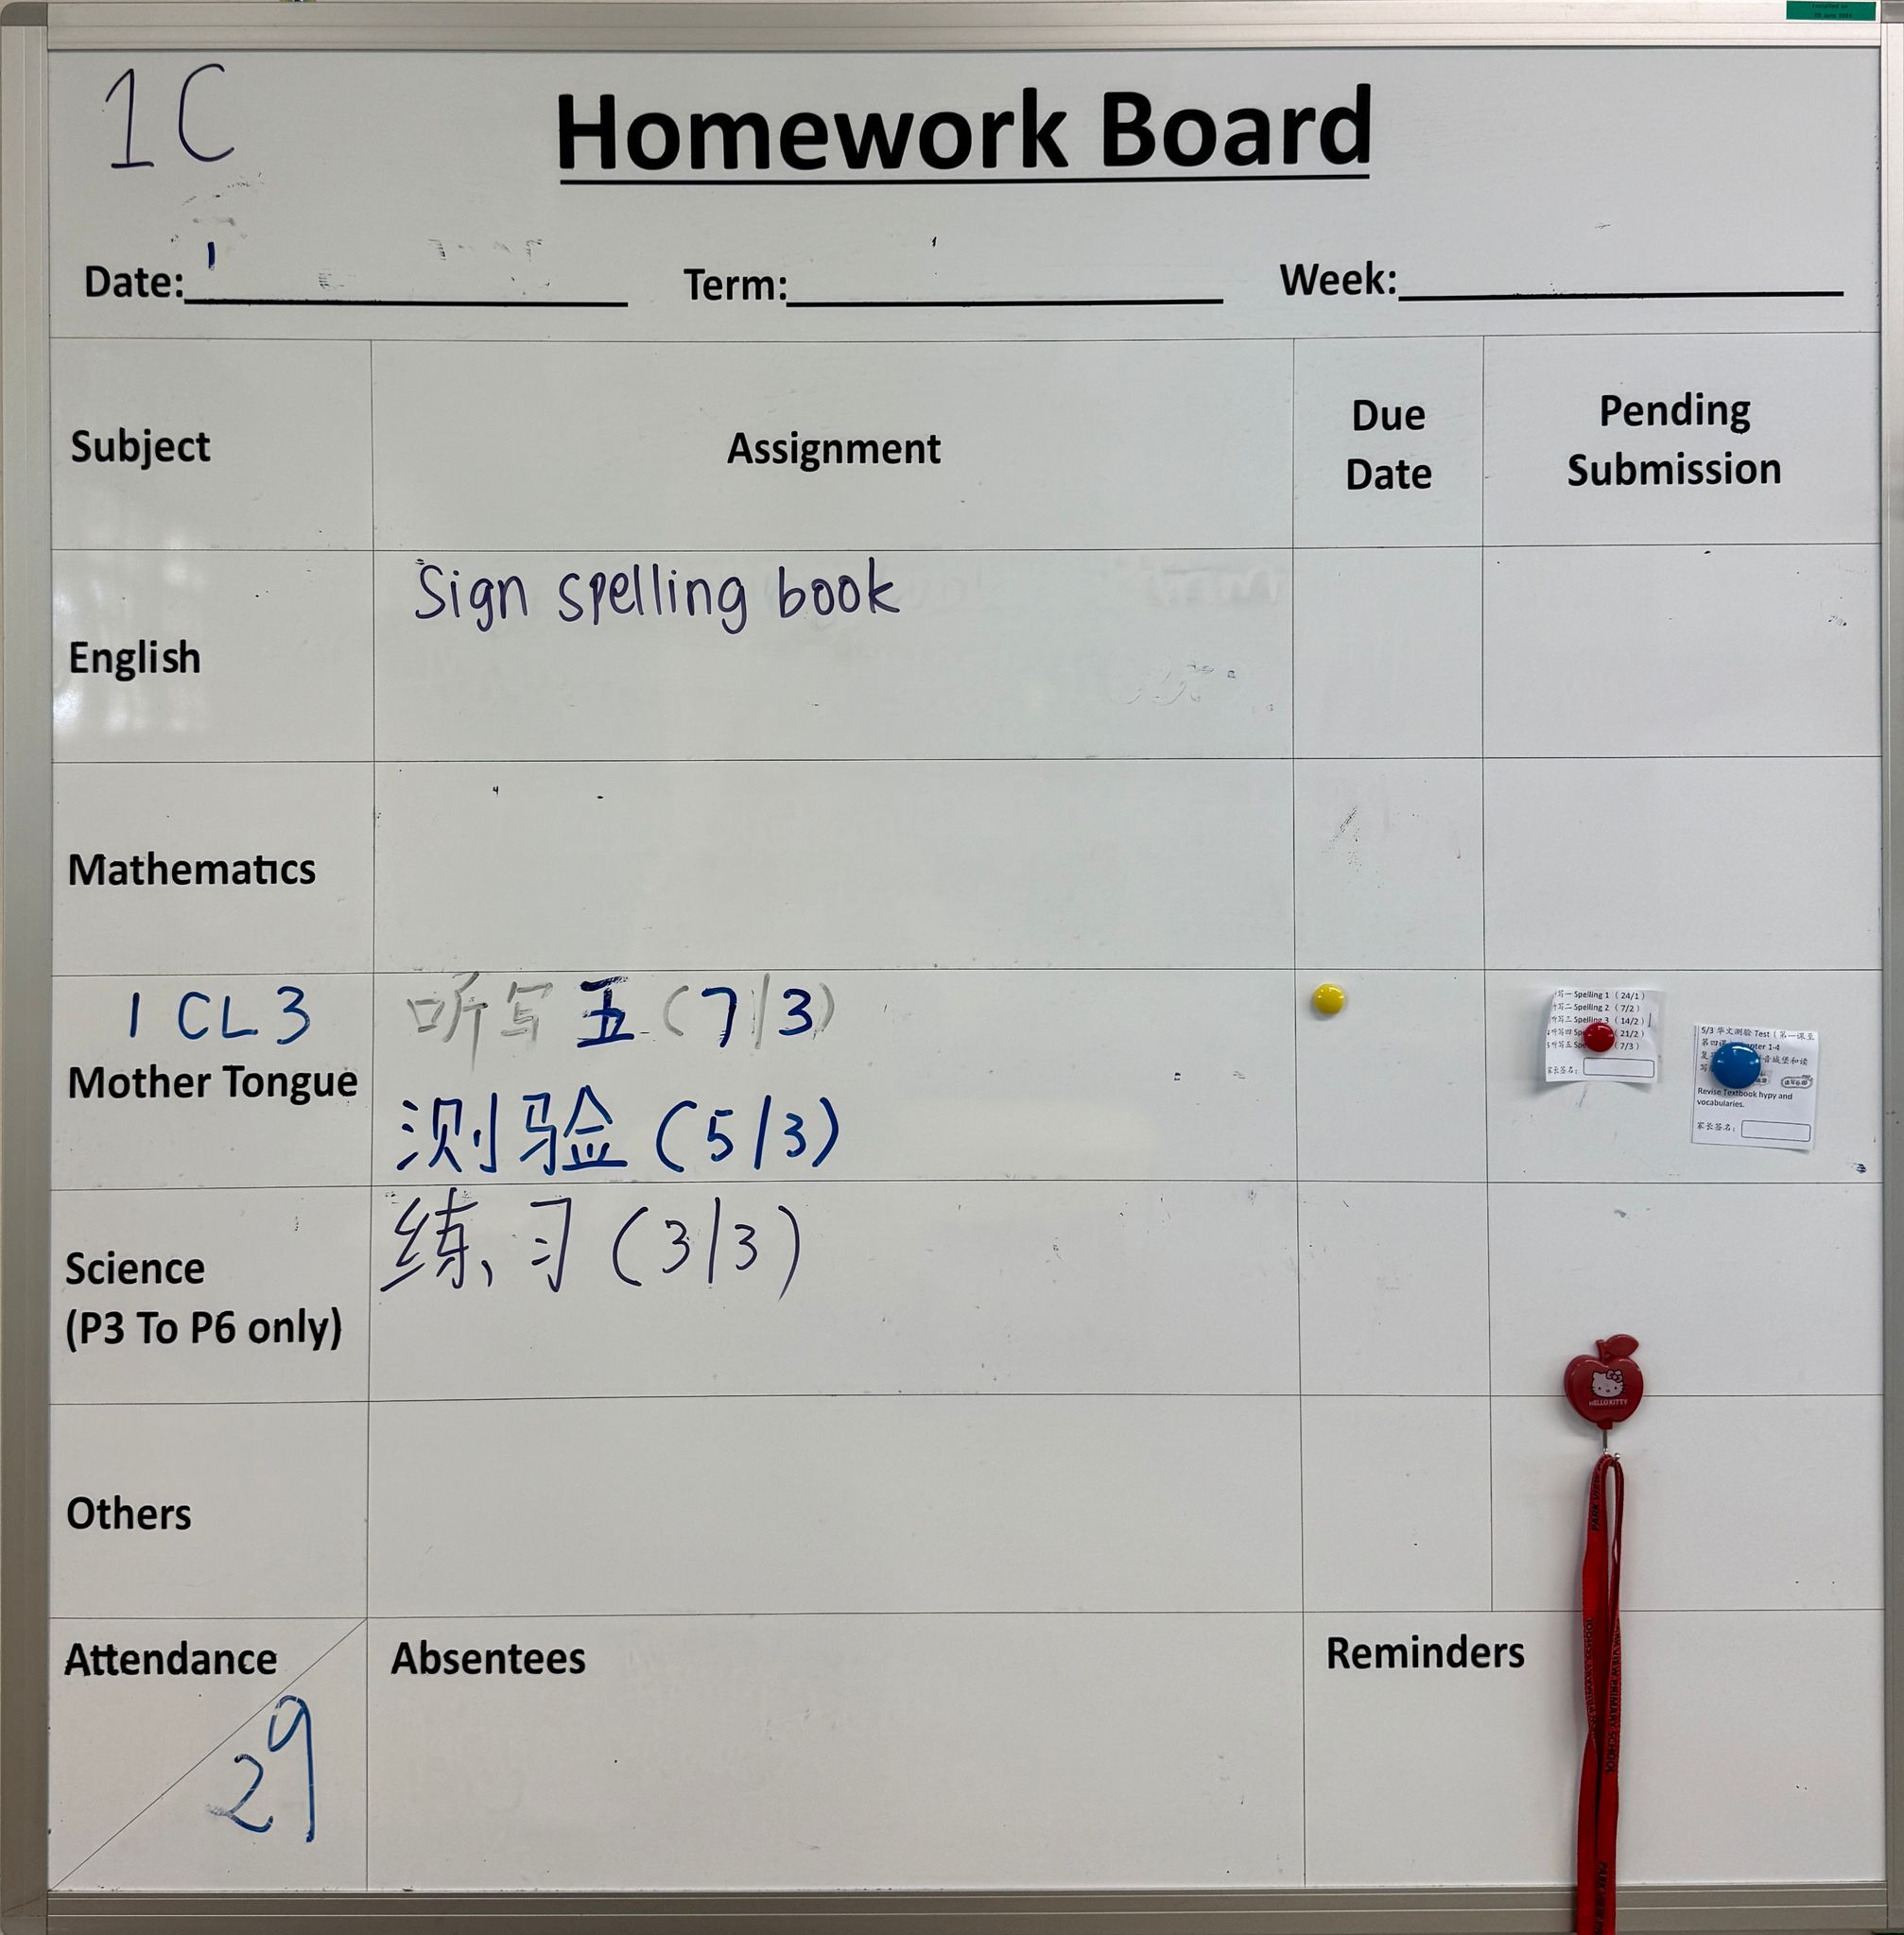 1C
Homework Board
Date:
Term:
Week:
Subject
Assignment
Due Date
Pending Submission
English
Sign spelling book
Mathematics
1 CL 3
Mother Tongue
听写五 (7/3)
测验 (5/3)
写一 Spelling 1 ( 24/1 )
写二 Spelling 2 ( 7/2 )
听写三 Spelling 3 ( 14/2 )
听写四 ( 21/2 )
听写五 ( 7/3 )
家长签名:
5/3 华文测验 Test ( 第一课至
第四课 1-4
音城堡和读
Revise Textbook hypy and
vocabularies.
家长签名:
Science
(P3 To P6 only)
练习 (3/3)
HELLO KITTY
Others
Attendance
29
Absentees
Reminders